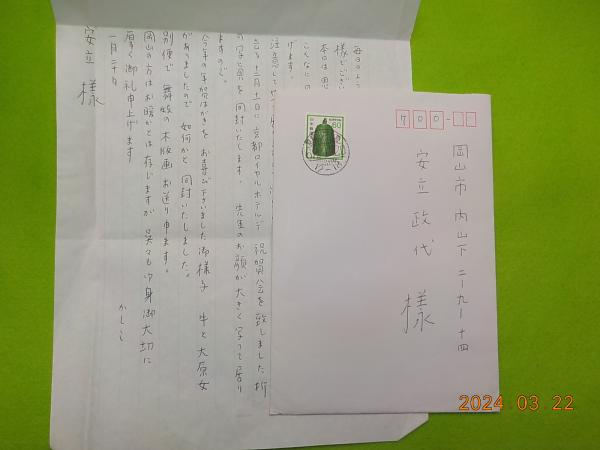 毎日のよう
様でござい
本日は思
こんなに
げます。
注意して
去る十二月七日に京都ロイヤルホテルで 祝賀会を致しました折
の写真を同封いたします。 先生のお顔が大きく写って居り
ますので。
今年の年賀はがきをお喜び下さいました御様子 牛と大原女
がありましたので 如何かと同封いたしました。
別便で 舞妓の木版画お送り申ます。
岡山の方はお暖かとは存じますが 呉々も御身御大切に
厚く御礼申上げます かしこ
一月二十日
安立 様
700-
岡山市 内山下 二-九-十四
安立 政代 様
60
日本郵便
NIPPON
2024.03.22